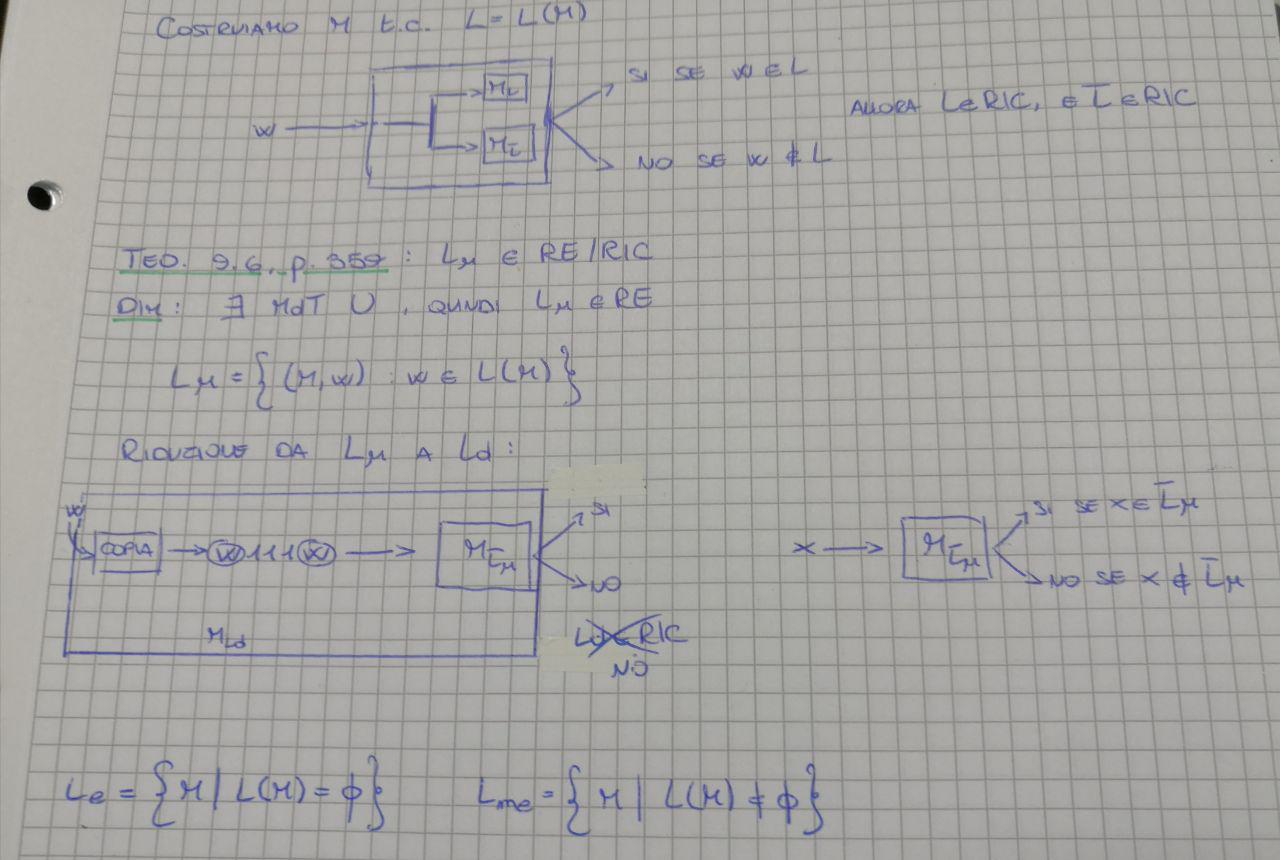 COSTRUIAMO M t.c. L = L(M)
W
M_L
M_L̅
SI SE W ∈ L
NO SE W ∉ L
ALLORA L∈RIC, E L̅ ∈ RIC
TEO. 9.6, p. 359 : Lμ ∈ RE/RIC
DIM : ∃ MdT U , QUINDI Lμ ∈ RE
Lμ = { (M,W) : W ∈ L(M) }
RIDUZIONE DA Lμ A Ld :
W
COPIA
W 111 W
M_L̅μ
SI
NO
M_Ld
Ld ∈ RIC
NO
X
M_L̅μ
SI SE X ∈ L̅μ
NO SE X ∉ L̅μ
Le = { M | L(M) = ϕ }
Lme = { M | L(M) ≠ ϕ }